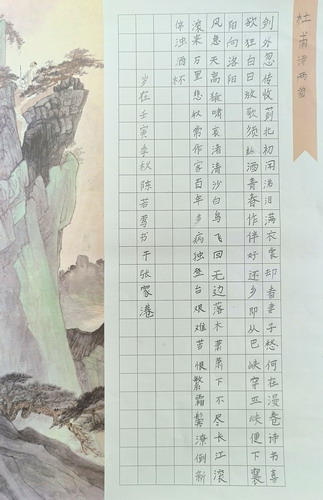 杜甫诗两首
剑外忽传收蓟北初闻涕泪满衣裳却看妻子愁何在漫卷诗书喜
欲狂白日放歌须纵酒青春作伴好还乡即从巴峡穿巫峡便下襄
阳向洛阳
风急天高猿啸哀渚清沙白鸟飞回无边落木萧萧下不尽长江滚
滚来万里悲秋常作客百年多病独登台艰难苦恨繁霜鬓潦倒新
停浊酒杯
岁在壬寅季秋陈若书于张家港